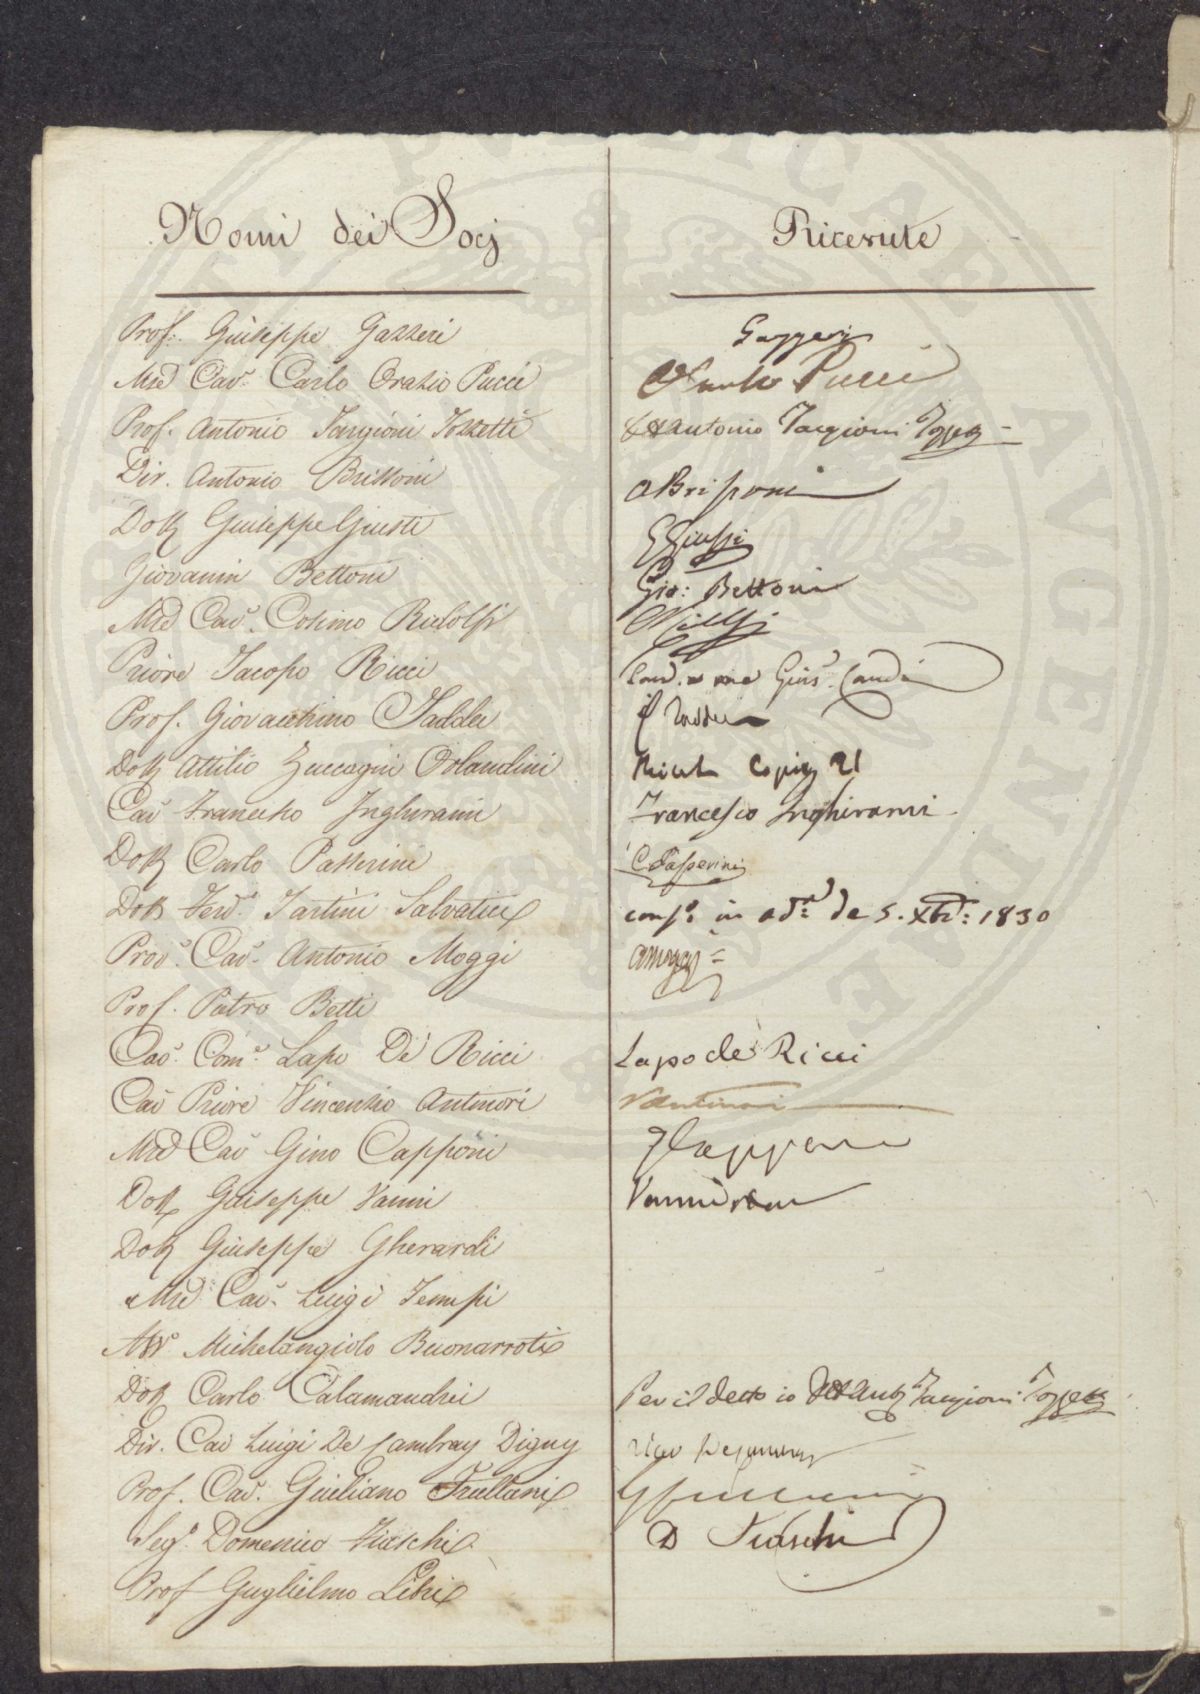 Nomi dei Socj
Ricevute
Prof. Giuseppe Gazzeri
Gazzeri
Mse Cav. Carlo Orazio Pucci
Pucci
Prof. Antonio Targioni Tozzetti
Antonio Targioni Tozzetti
Dir. Antonio Brissoni
A Brissoni
Dott Giuseppe Giusti
G Giusti
Giovanni Bettoni
Gio: Bettoni
Mse Cav. Cosimo Ridolfi
Priore Jacopo Ricci
Gius.
Prof. Giovacchino Taddei
Taddei
Dott Attilio Zuccagni Orlandini
Cav Francesco Inghirami
Francesco Inghirami
Dott Carlo Passerini
C Passerini
Dott Ferd. Tartini Salvatici
in ad. de 5. Xbre: 1830
Prov. Cav. Antonio Moggi
Prof. Pietro Betti
Cav. Com. Lapo De Ricci
Lapo de Ricci
Cav Priore Vincenzio Antinori
V Antinori
Mse Cav Gino Capponi
G Capponi
Dott Giuseppe Vanni
Vanni
Dott Giuseppe Gherardi
Mse Cav. Luigi Tempi
Avv. Michelangiolo Buonarroti
Dott Carlo Calamandrei
Per il detto io Ant Targioni Tozzetti
Dir. Cav Luigi De Cambray Digny
Prof. Cav. Giuliano Frullani
Seg. Domenico Fiaschi
D Fiaschi
Prof Guglielmo Libri